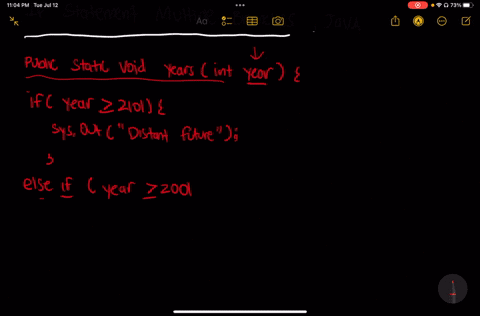 11:04 PM Tue Jul 12
73%
Aa
Public Static Void years (int year) {
if( year ≥ 2101) {
sys.out ("Distant future");
}
else if ( year ≥ 2001